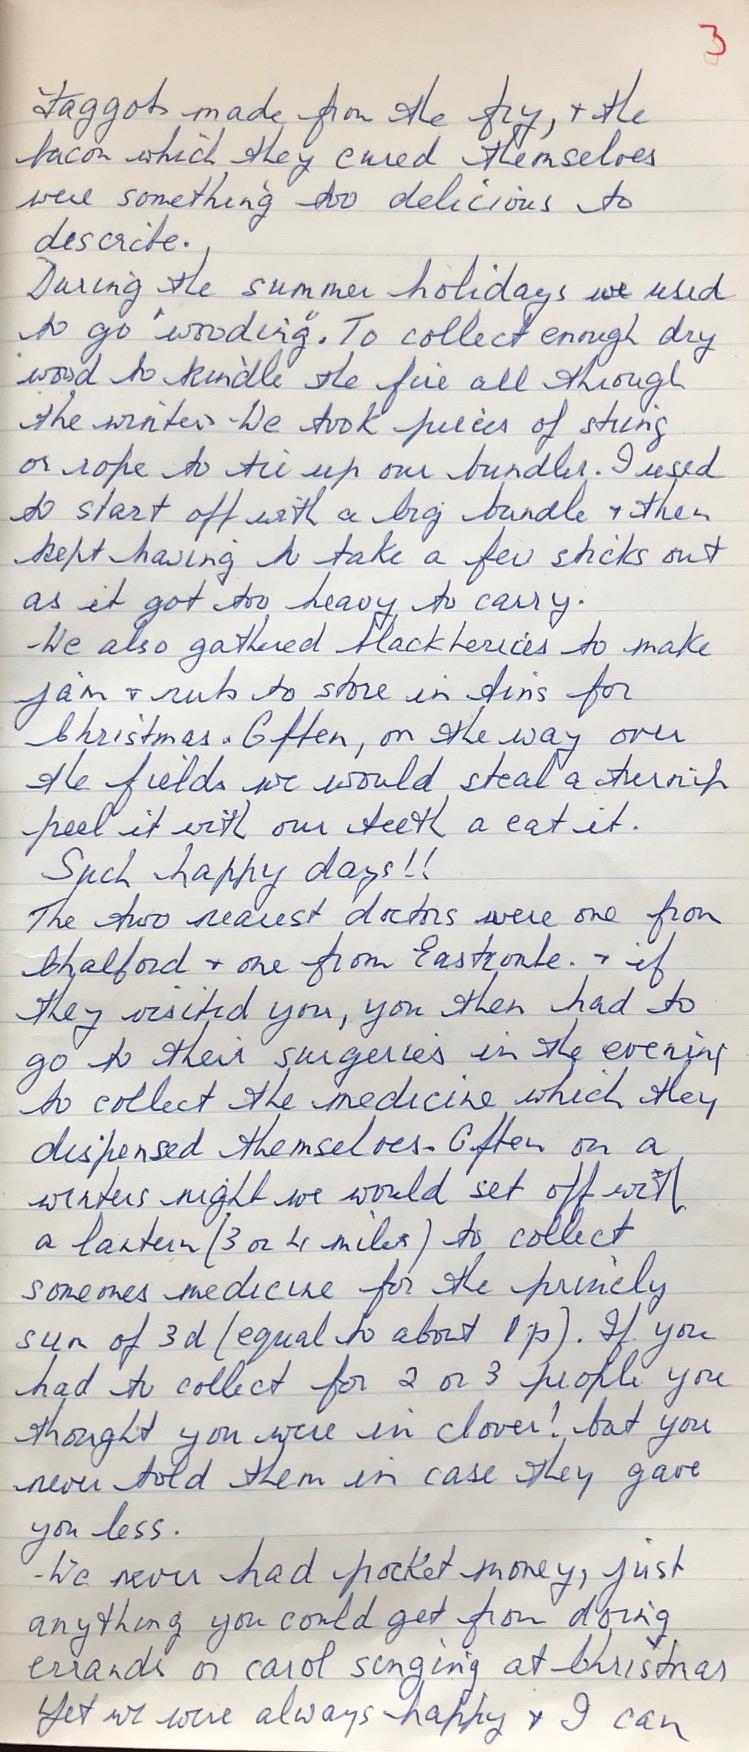 3
Faggots made from the fry, + the
bacon which they cured themselves
were something too delicious to
describe.
During the summer holidays we used
to go "wooding". To collect enough dry
wood to kindle the fire all through
the winter. We took pieces of string
or rope to tie up our bundles. I used
to start off with a big bundle + then
kept having to take a few sticks out
as it got too heavy to carry.
We also gathered blackberries to make
jam + nuts to store in tins for
Christmas. Often, on the way over
the fields we would steal a turnip
peel it with our teeth a eat it.
Such happy days!!
The two nearest doctors were one from
Chalford + one from Eastcombe. + if
they visited you, you then had to
go to their surgeries in the evening
to collect the medicine which they
dispensed themselves. Often on a
winters night we would set off with
a lantern (3 or 4 miles) to collect
someones medicine for the princely
sum of 3d (equal to about 1p). If you
had to collect for 2 or 3 people you
thought you were in clover! but you
never told them in case they gave
you less.
We never had pocket money, just
anything you could get from doing
errands or carol singing at Christmas
Yet we were always happy + I can